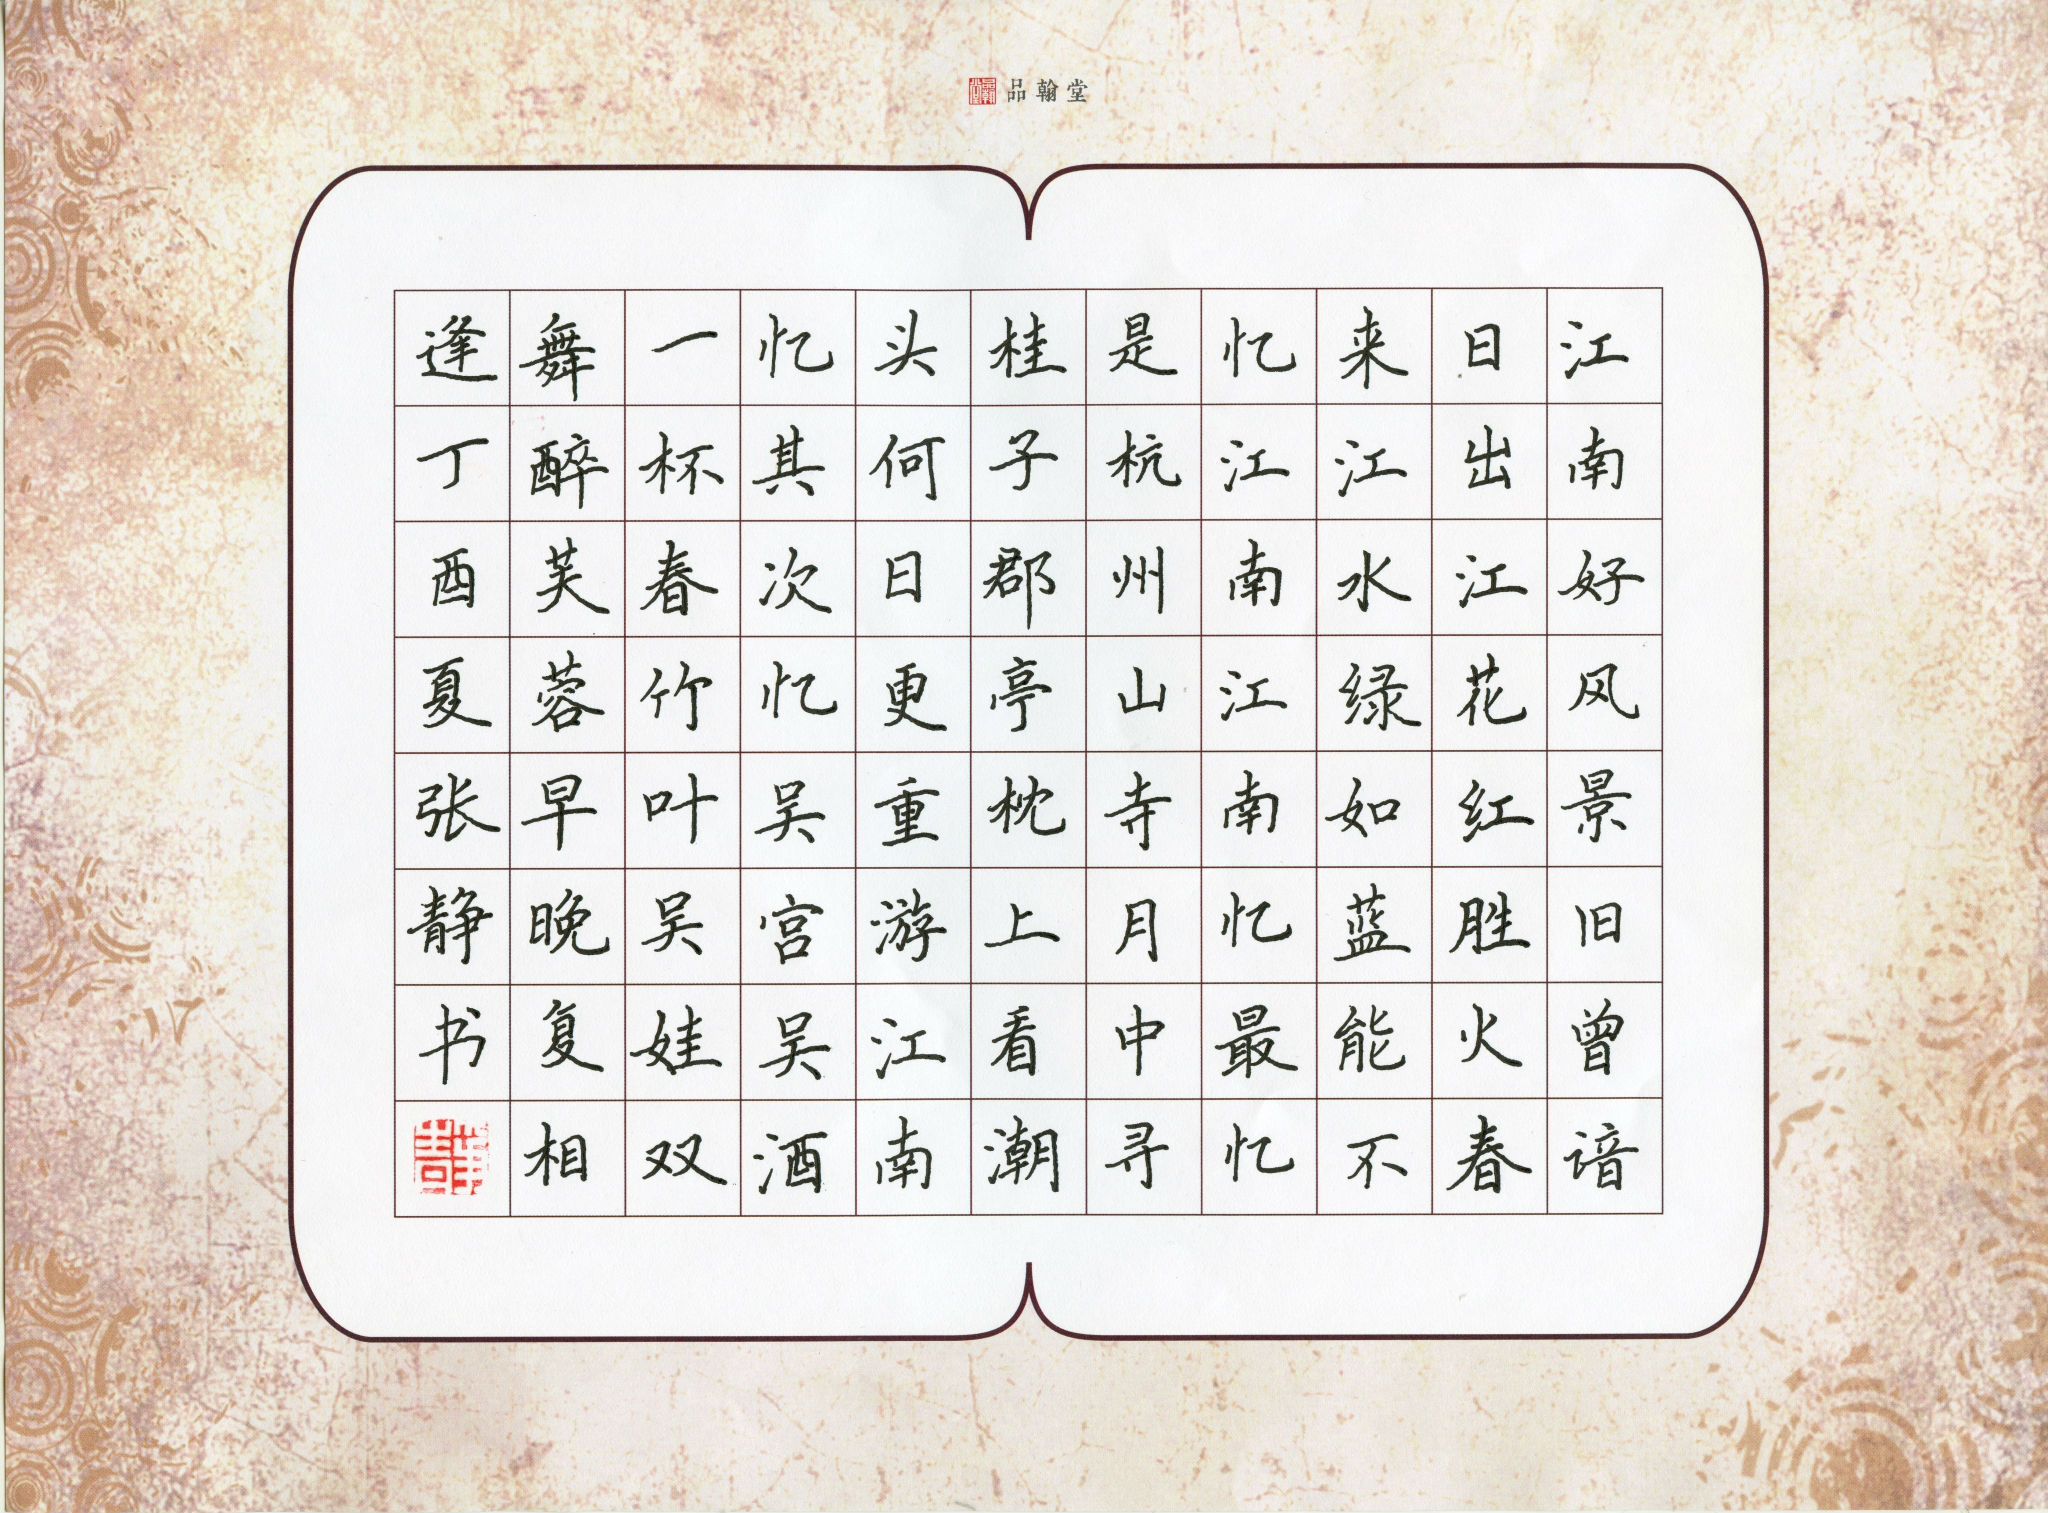 品翰堂
江南好风景旧曾谙
日出江花红胜火春
来江水绿如蓝能不
忆江南江南忆最忆
是杭州山寺月中寻
桂子郡亭枕上看潮
头何日更重游江南
忆其次忆吴宫吴酒
一杯春竹叶吴娃双
舞醉芙蓉早晚复相
逢丁酉夏张静书